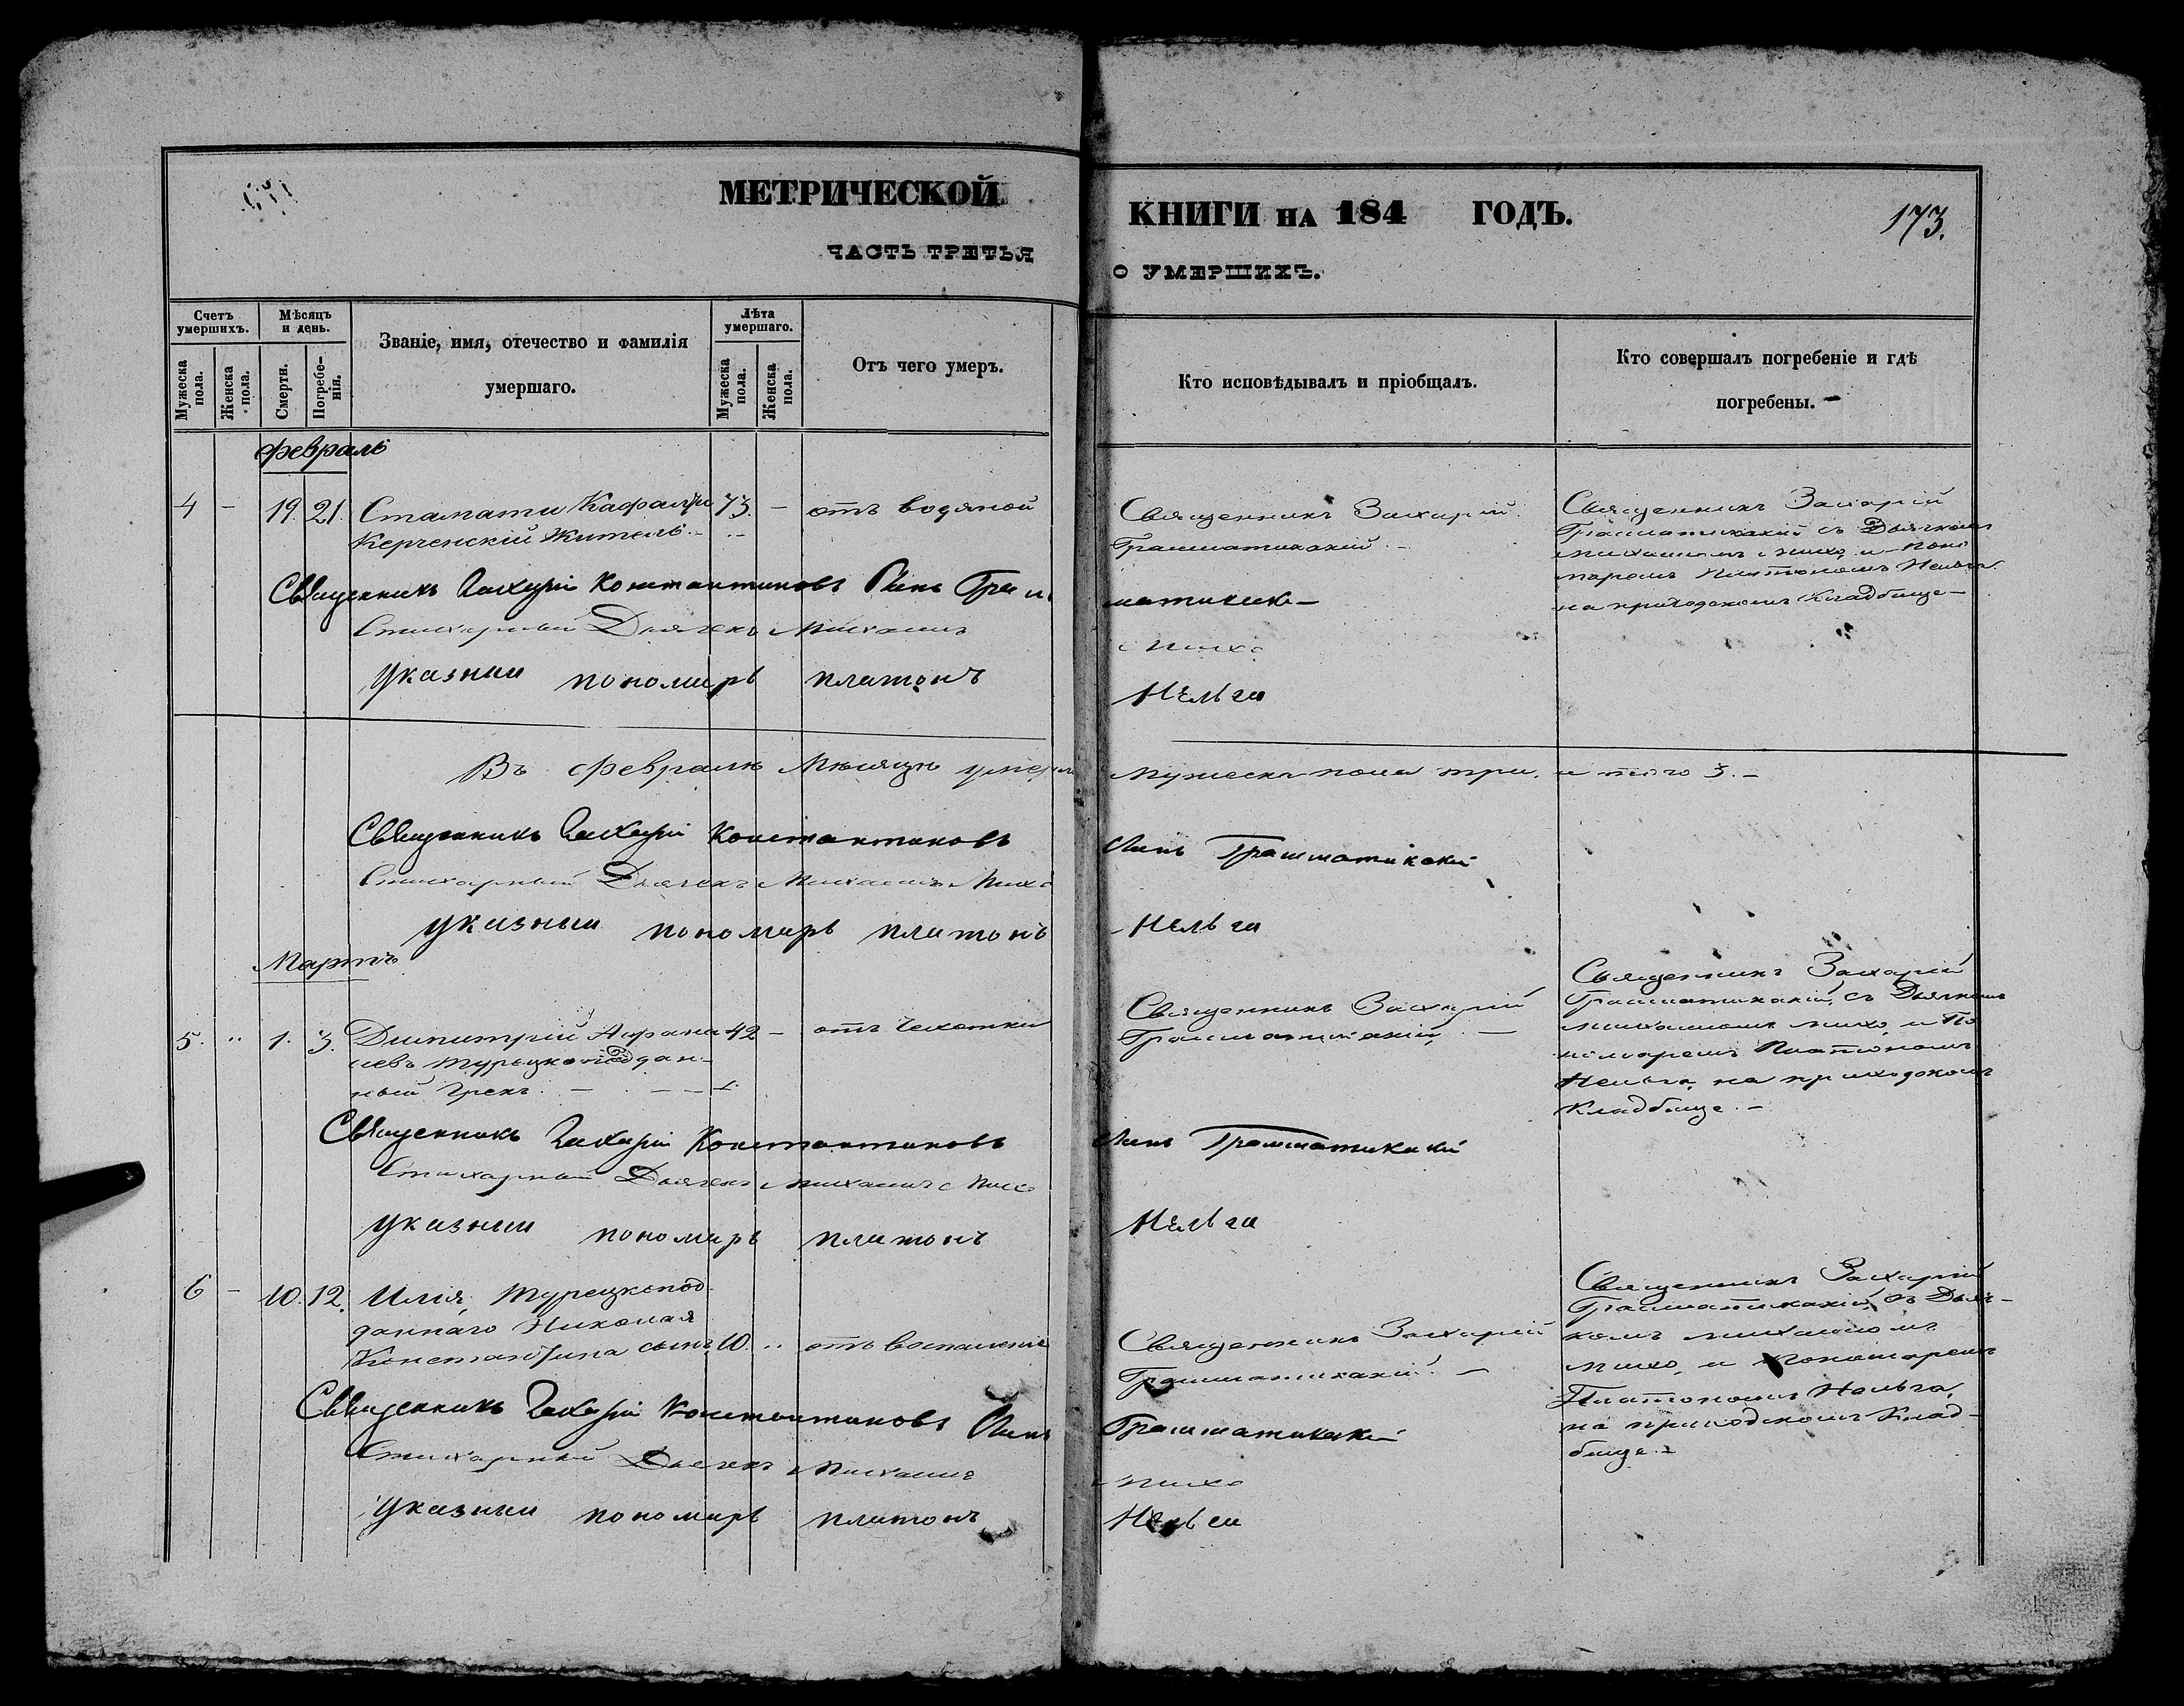 МЕТРИЧЕСКОЙ
КНИГИ НА 184 ГОДЪ.
173.
ЧАСТЬ ТРЕТЬЯ
О УМЕРШИХЪ.
Счетъ умершихъ.
Мужеска пола.
Женска пола.
Мѣсяцъ и день.
Смерти.
Погребенія.
Званіе, имя, отечество и фамилія
умершаго.
Лѣта умершаго.
Мужеска пола.
Женска пола.
Отъ чего умеръ.
Кто исповѣдывалъ и пріобщалъ.
Кто совершалъ погребеніе и гдѣ
погребены.
февраль
4 - 19. 21. Стамати 73. - отъ водяной
Керченскій житель.
Священникъ Захарій
Грамматикакій. -
Священникъ Захарій
Грамматикакій съ Дьячкомъ
Михаиломъ Михо, и Поно
маремъ Платономъ Нельга
на приходскомъ кладбище -
Священникъ Захарій Константиновъ
Стихарный Дьячекъ Михаилъ
Михо
указный пономарь платонъ
Нельга
Въ февралѣ Мѣсяцѣ умерло мужеска пола три, и того 3. -
Священникъ Захарій Константиновъ
Грамматикакій
Стихарный Дьячекъ Михаилъ Михо
указный пономарь платонъ
Нельга
Мартъ
5. " 1. 3. Димитрій Афана 42 - отъ Чехотки
сіевъ Турецкоподдан-
ный Грекъ. -
Священникъ Захарій
Грамматикакій, -
Священникъ Захарій
Грамматикакій, съ Дьячкомъ
Михаиломъ Михо, и По
номаремъ Платономъ
Нельга, на приходскомъ
Кладбище. -
Священникъ Захарій Константиновъ
Грамматикакій
Стихарный Дьячекъ Михаилъ Михо
указный пономарь платонъ
Нельга
6 - 10. 12. Илія, Турецкопод-
даннаго Николая
Константина сынъ, 10. " отъ воспаленія
Священникъ Захарій
Грамматикакій. -
Священникъ Захарій
Грамматикакій, съ Дьяч-
комъ Михаиломъ
Михо, и Пономаремъ
Платономъ Нельга,
на приходскомъ Клад-
бище. -
Священникъ Захарій Константиновъ
Грамматикакій
Стихарный Дьячекъ Михаилъ
Михо
указный пономарь платонъ
Нельга